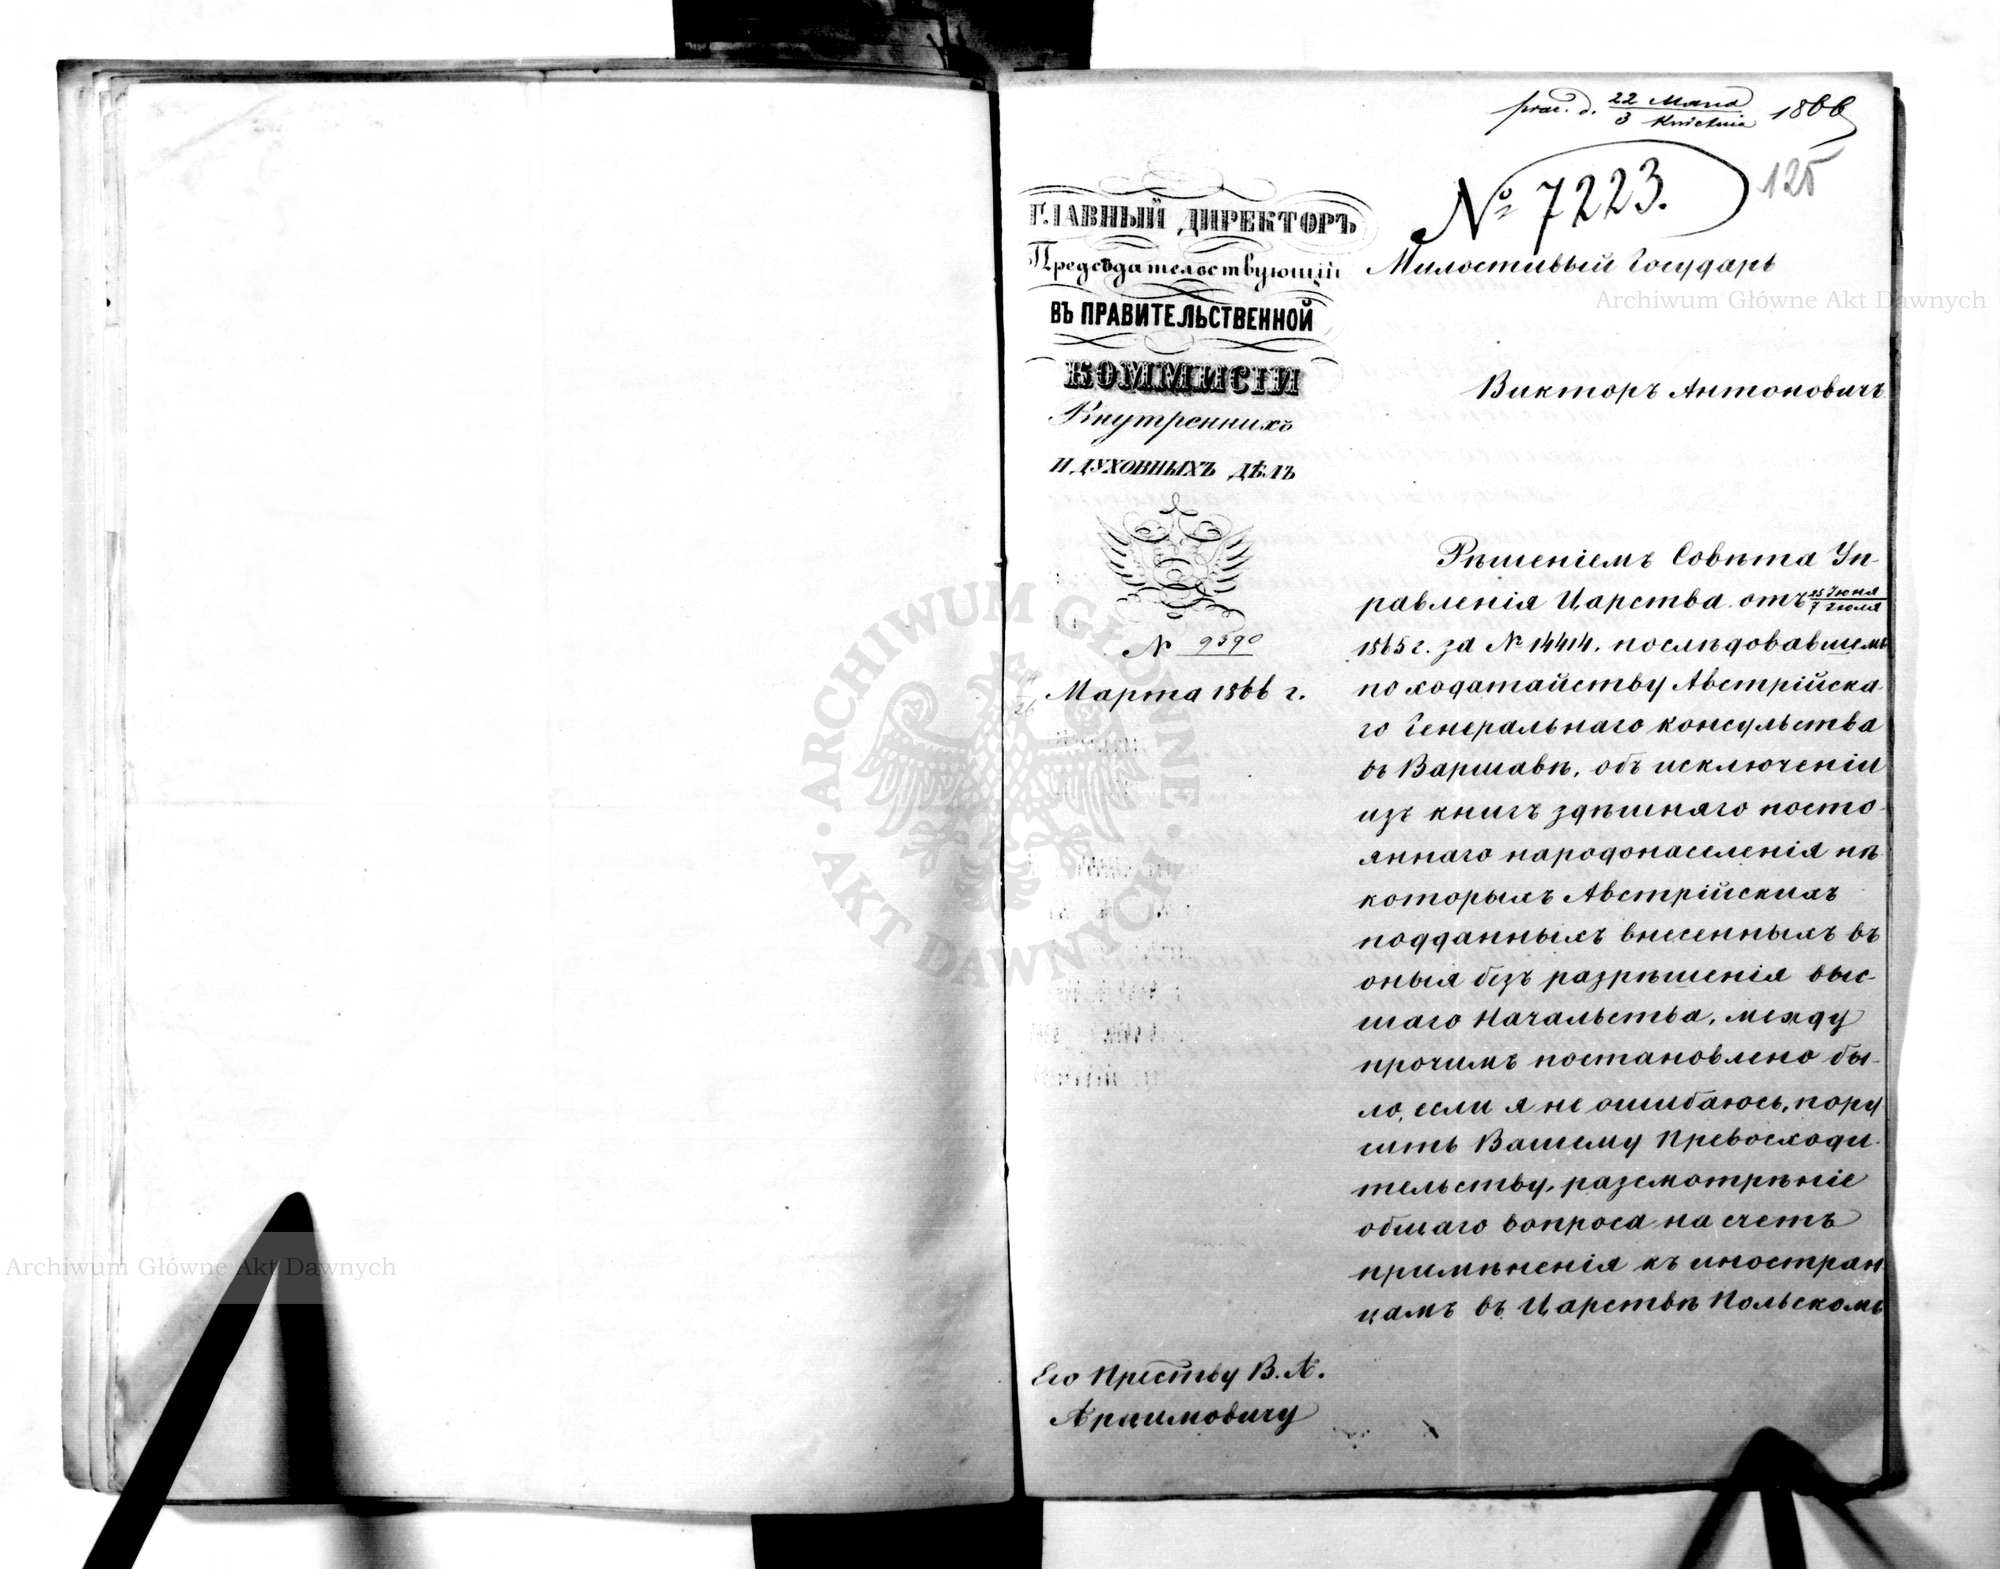 prae. d. 22 Marca / 3 Kwietnia 1866
№ 7223.
125
ГЛАВНЫЙ ДИРЕКТОРЪ
Предсѣдательствующій
ВЪ ПРАВИТЕЛЬСТВЕННОЙ
КОММИСІИ
Внутреннихъ
И ДУХОВНЫХЪ ДѢЛЪ
№ 9390
Марта 1866 г.
Милостивый Государь
Викторъ Антоновичъ
Рѣшеніемъ Совѣта Уп-
равленія Царства отъ 25 Іюня / 7 Іюля
1865 г. за № 14414, послѣдовавшемъ
по ходатайству Австрійска-
го Генеральнаго консульства
въ Варшавѣ, объ исключеніи
изъ книгъ здѣшняго посто-
яннаго народонаселенія нѣ-
которыхъ Австрійскихъ
подданныхъ внесенныхъ въ
оныя безъ разрѣшенія выс-
шаго Начальства, между
прочимъ постановлено бы-
ло, если я не ошибаюсь, пору
чить Вашему Превосходи-
тельству, разсмотрѣніе
общаго вопроса на счетъ
примѣненія къ иностран
цамъ въ Царствѣ Польскомъ
Его Прев-ству В. А.
Арцимовичу
Archiwum Główne Akt Dawnych
Archiwum Główne Akt Dawnych
ARCHIWUM GŁÓWNE
AKT DAWNYCH